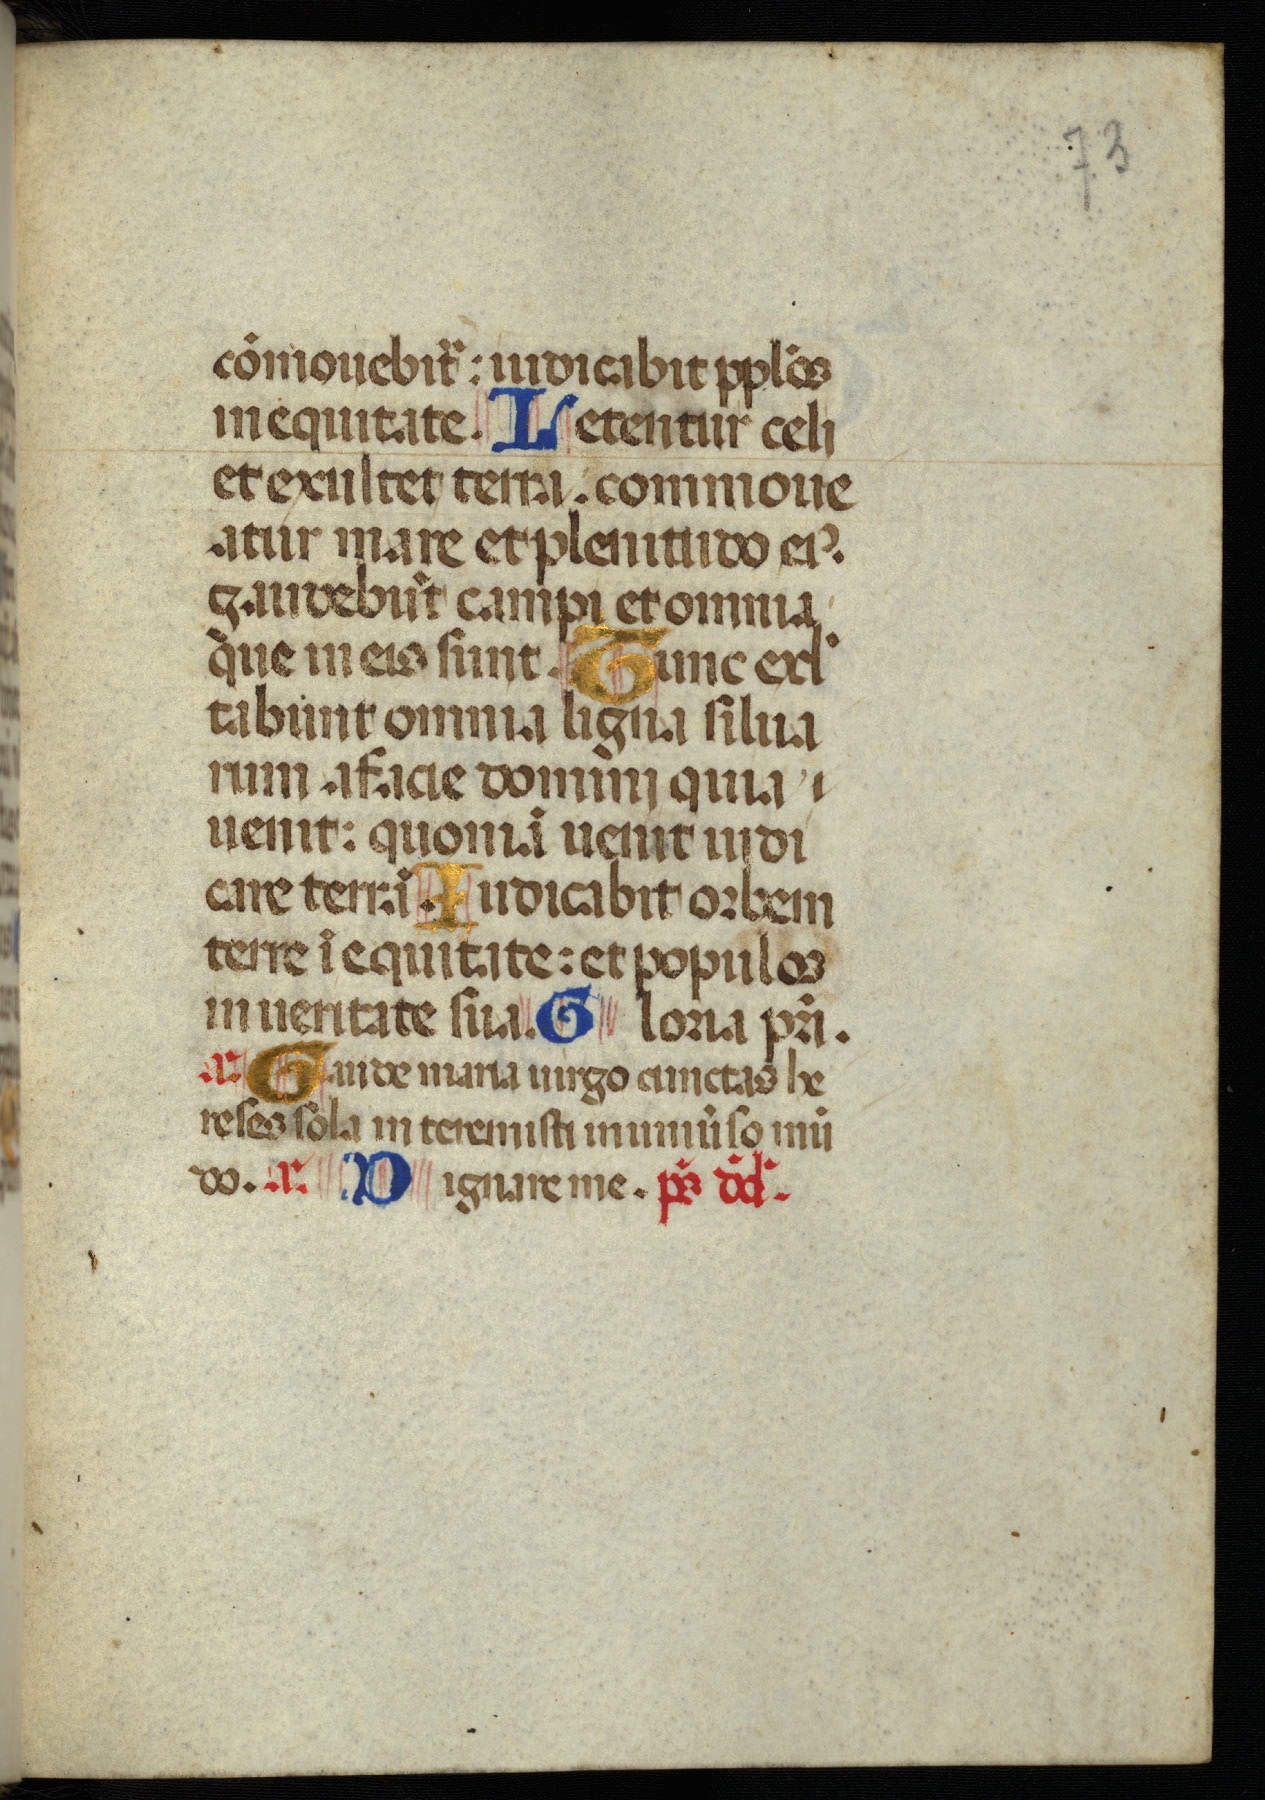 73
cōmouebit᷑: iudicabit ppl̄os
in equitate. Letentur celi
et exultet terra. commoue
atur mare et plenitudo eiꝰ.
gaudebūt campi et omnia
que in eis sunt. Tunc exl
tabunt omnia ligna silua
rum a facie domini quia
uenit: quoniā uenit iudi
care terrā. Iudicabit orbem
terre ī equitate: et populos
in ueritate sua. Gloria pr̄i.
a. Gaude maria uirgo cunctas he
reses sola interemisti in uniūso mū
do. a. Dignare me. ps̄ dd̄.